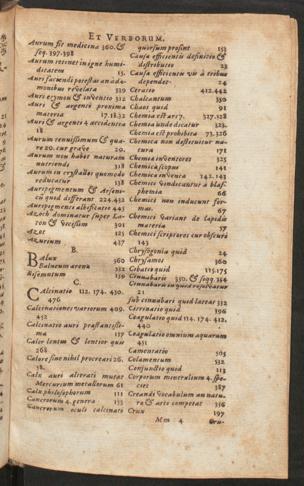 ET VERBORUM.
Aurum fit medicina 360. &
seq. 397.398
Aurum retinet insigne humi-
ditatem 15.
Auri faciendi potestas an dæ-
monibus revelata 329
Auri etymon & inventio 312
Auri & argenti proxima
materia 17.18.32
Auri & argenti 4 accidentia
18
Aurum tenuissimum & qua-
re 20. cur grave 20.
Aurum non habet naturam
nutriendi 318
Aurum in crystallos quomodo
reducatur 138
Auripigmentum & Arseni-
ci quid differant 224.432
Auripigmentis albificatio 445
Azoch dominatur super La-
ton & vicissim 301
Azot 125
Azurium 437
B.
Balus 360
Balneum arenæ 332
Bisemutum 159
C.
Calcinatio 112. 174. 430.
476
Calcinationes variorum 409.
452
Calcinatio auri præstantissi-
ma 157
Calor lentus & lentior quis
268
Calore sine nihil procreari 26.
58.
Calx auri alterati mutat
Mercurium metallorum 61
Calx philosophorum 111
Cancrorum 4. genera 155
Cancrorum oculi calcinati
quorsum prosint 153
Causæ efficientis definitio &
distributio 23
Causæ efficientis vis à tribus
dependet 24
Ceratio 412.442
Chalcantum 350
Chaos quid 91
Chemia est ars 7. 327.328
Chemia unde dicatur 323.
Chemia est prohibita 73.326
Chemica non destituitur na-
tura 171
Chemiæ inventores 325
Chemiæ scopus 141
Chemiæ inventa 142.143
Chemicæ vindicantur à blas-
phemia 66
Chemici non inducunt for-
mas. 67
Chemici variant de lapidis
materia 57
Chemici scriptores cur obscuri
143
Chrysogonia quid 24
Chrysamos 360
Cibatio quid 115.175
Cinnabaris 350. & seq. 354
21
sub cinnabari quid lateat 332
Citrinatio quid 196
Coagulatio quid 114. 174 412.
440
Coagulatio omnium aquarum
431
Cœmentatio 505
Colamentum 532
Conjunctio quid 113
Corporum mineralium 4. spe-
cies 387
Creandi vocabulum an natu-
ræ & arti competat 336
Crux 197
Mm 4 Cru-